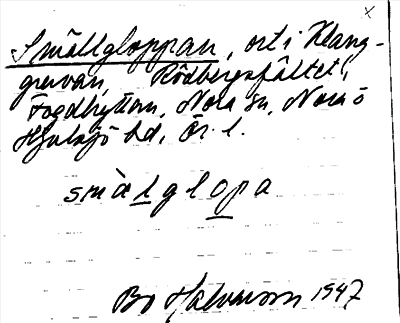 x
Smällgloppan, ort i Klang-
gruvan, Rödbergsfältet,
Fogdhyttan, Nora sn, Nora o
Hjulsjö bd, Ör. l.
smàlglopa
Bo 1947